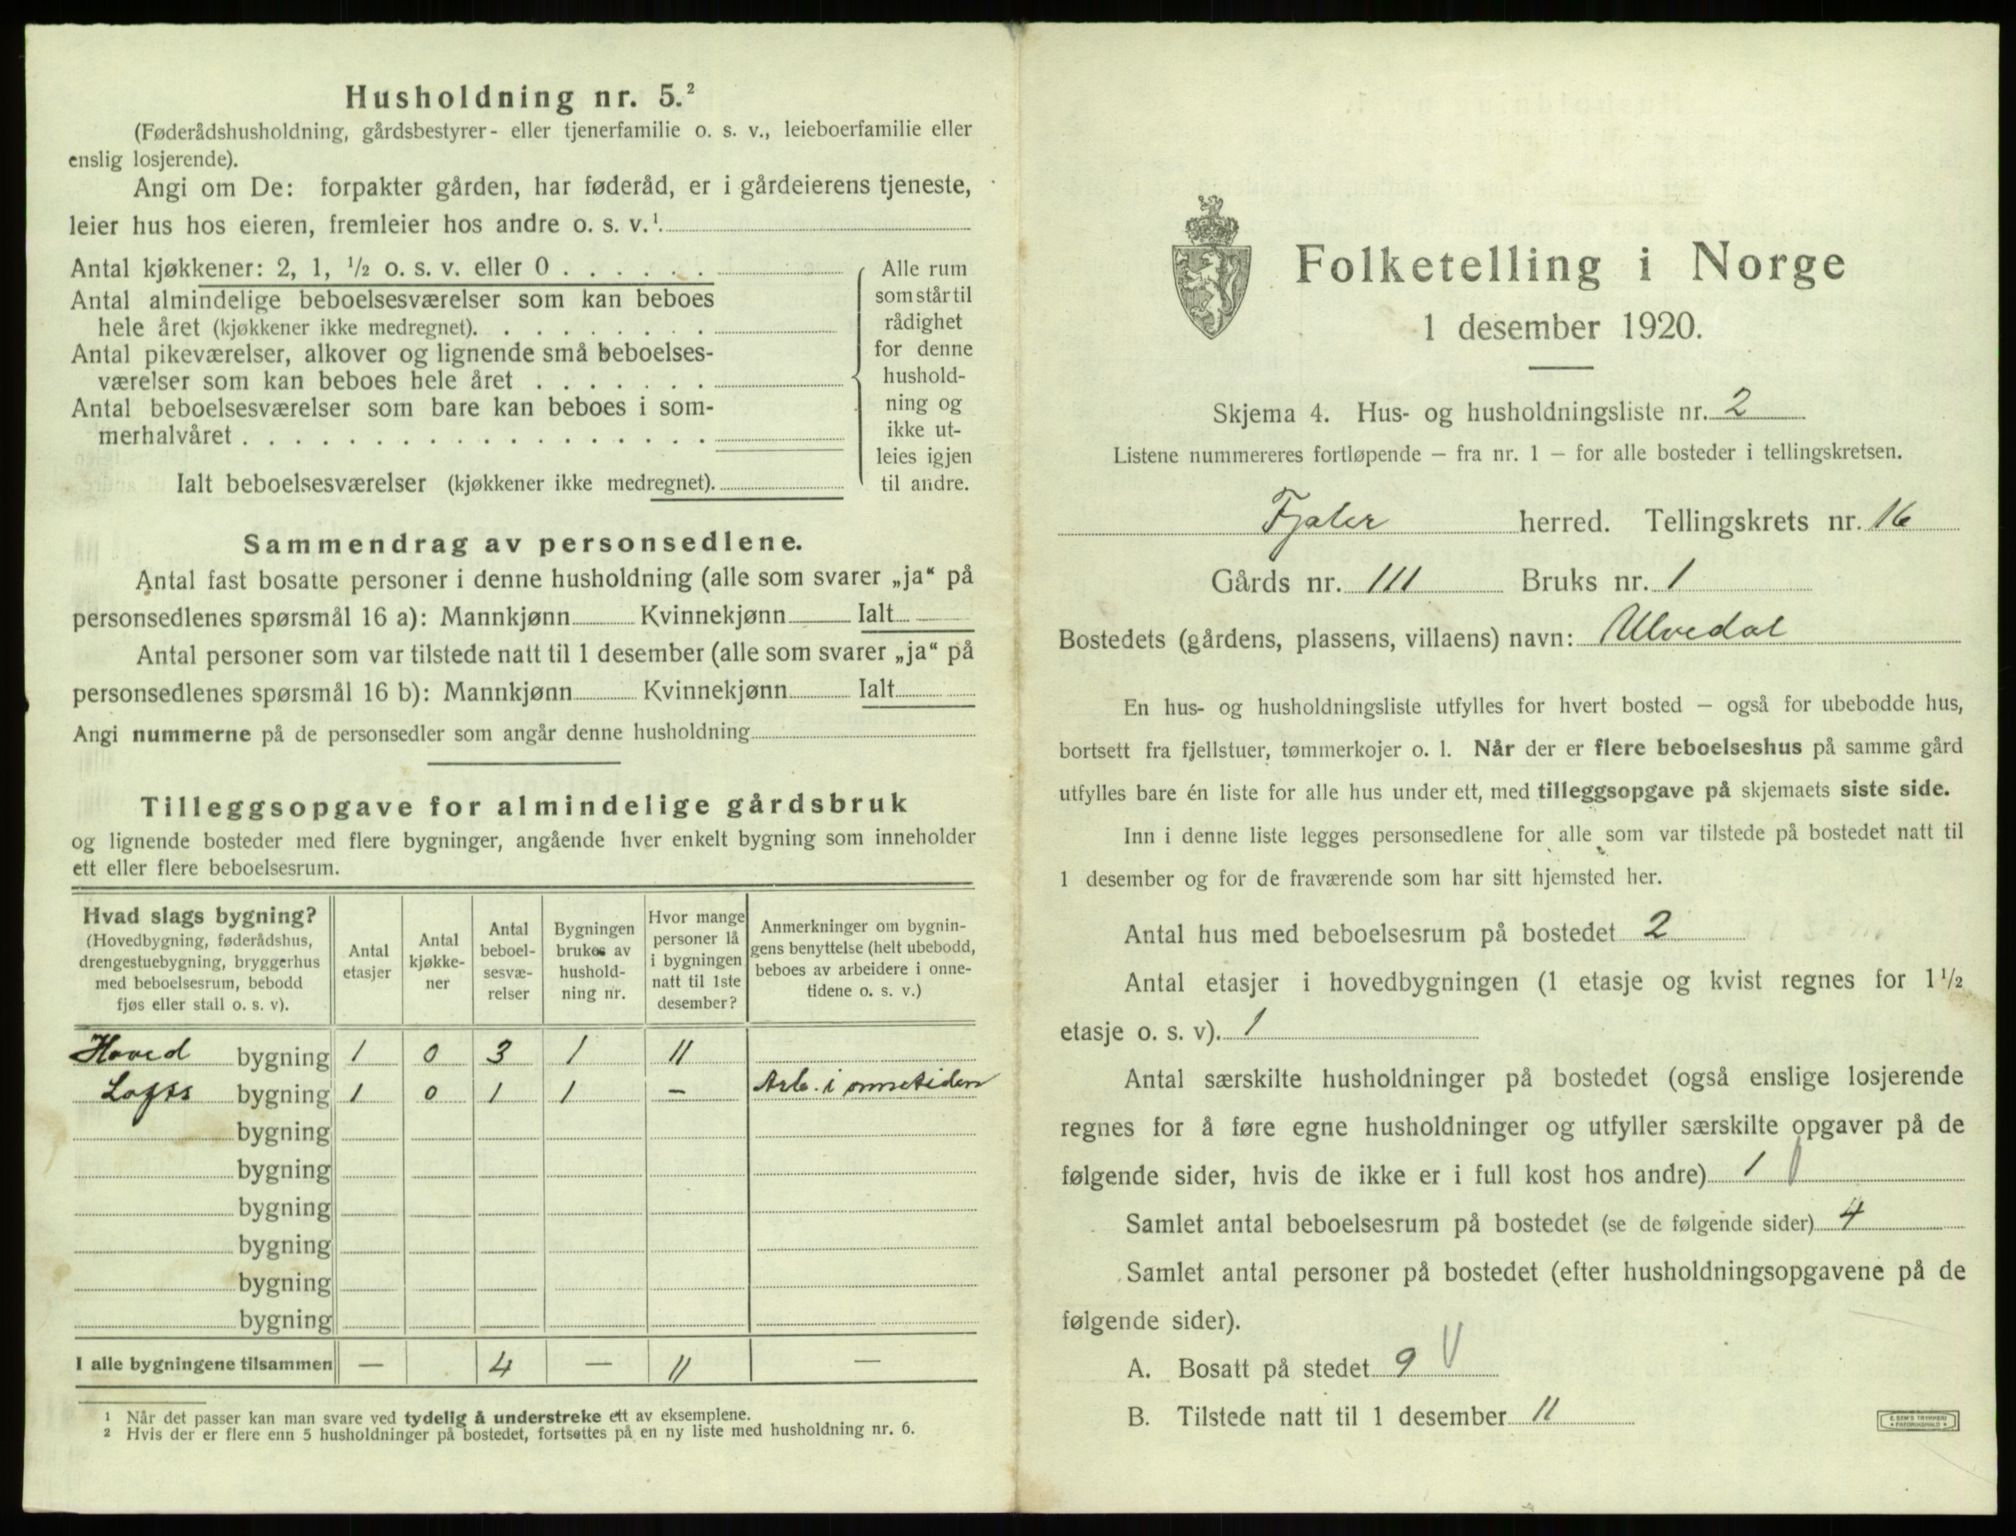 Husholdning nr. 5.²
(Føderådshusholdning, gårdsbestyrer- eller tjenerfamilie o. s. v., leieboerfamilie eller
enslig losjerende).
Angi om De: forpakter gården, har føderåd, er i gårdeierens tjeneste,
leier hus hos eieren, fremleier hos andre o. s. v.¹
Antal kjøkkener: 2, 1, ½ o. s. v. eller 0 . . . . . .
Antal almindelige beboelsesværelser som kan beboes
hele året (kjøkkener ikke medregnet). . . . . . . . .
Antal pikeværelser, alkover og lignende små beboelses-
værelser som kan beboes hele året . . . . . . .
Antal beboelsesværelser som bare kan beboes i som-
merhalvåret . . . . . . . . . . . . . . . . . .
Ialt beboelsesværelser (kjøkkener ikke medregnet).
Alle rum
som står til
rådighet
for denne
hushold-
ning og
ikke ut-
leies igjen
til andre.
Sammendrag av personsedlene.
Antal fast bosatte personer i denne husholdning (alle som svarer „ja“ på
personsedlenes spørsmål 16 a): Mannkjønn Kvinnekjønn Ialt
Antal personer som var tilstede natt til 1 desember (alle som svarer „ja“ på
personsedlenes spørsmål 16 b): Mannkjønn Kvinnekjønn Ialt
Angi nummerne på de personsedler som angår denne husholdning
Tilleggsopgave for almindelige gårdsbruk
og lignende bosteder med flere bygninger, angående hver enkelt bygning som inneholder
ett eller flere beboelsesrum.
Hvad slags bygning?
(Hovedbygning, føderådshus,
drengestuebygning, bryggerhus
med beboelsesrum, bebodd
fjøs eller stall o. s. v).
Antal
etasjer
Antal
kjøkke-
ner
Antal
beboel-
sesvæ-
relser
Bygningen
brukes av
hushold-
ning nr.
Hvor mange
personer lå
i bygningen
natt til 1ste
desember?
Anmerkninger om bygnin-
gens benyttelse (helt ubebodd,
beboes av arbeidere i onne-
tidene o. s. v.)
Hoved bygning 1 0 3 1 11
Lofts bygning 1 0 1 1 – Arb. i onnetiden
bygning
bygning
bygning
bygning
bygning
bygning
I alle bygningene tilsammen — 4 — 11 —
¹ Når det passer kan man svare ved tydelig å understreke ett av eksemplene.
² Hvis der er flere enn 5 husholdninger på bostedet, fortsettes på en ny liste med husholdning nr. 6.
Folketelling i Norge
1 desember 1920.
Skjema 4. Hus- og husholdningsliste nr. 2
Listene nummereres fortløpende – fra nr. 1 – for alle bosteder i tellingskretsen.
Fjaler herred. Tellingskrets nr. 16
Gårds nr. 111 Bruks nr. 1
Bostedets (gårdens, plassens, villaens) navn: Ulvedal
En hus- og husholdningsliste utfylles for hvert bosted – også for ubebodde hus,
bortsett fra fjellstuer, tømmerkojer o. l. Når der er flere beboelseshus på samme gård
utfylles bare én liste for alle hus under ett, med tilleggsopgave på skjemaets siste side.
Inn i denne liste legges personsedlene for alle som var tilstede på bostedet natt til
1 desember og for de fraværende som har sitt hjemsted her.
Antal hus med beboelsesrum på bostedet 2
Antal etasjer i hovedbygningen (1 etasje og kvist regnes for 1½
etasje o. s. v). 1
Antal særskilte husholdninger på bostedet (også enslige losjerende
regnes for å føre egne husholdninger og utfyller særskilte opgaver på de
følgende sider, hvis de ikke er i full kost hos andre) 1
Samlet antal beboelsesrum på bostedet (se de følgende sider) 4
Samlet antal personer på bostedet (efter husholdningsopgavene på de
følgende sider).
A. Bosatt på stedet 9
B. Tilstede natt til 1 desember 11